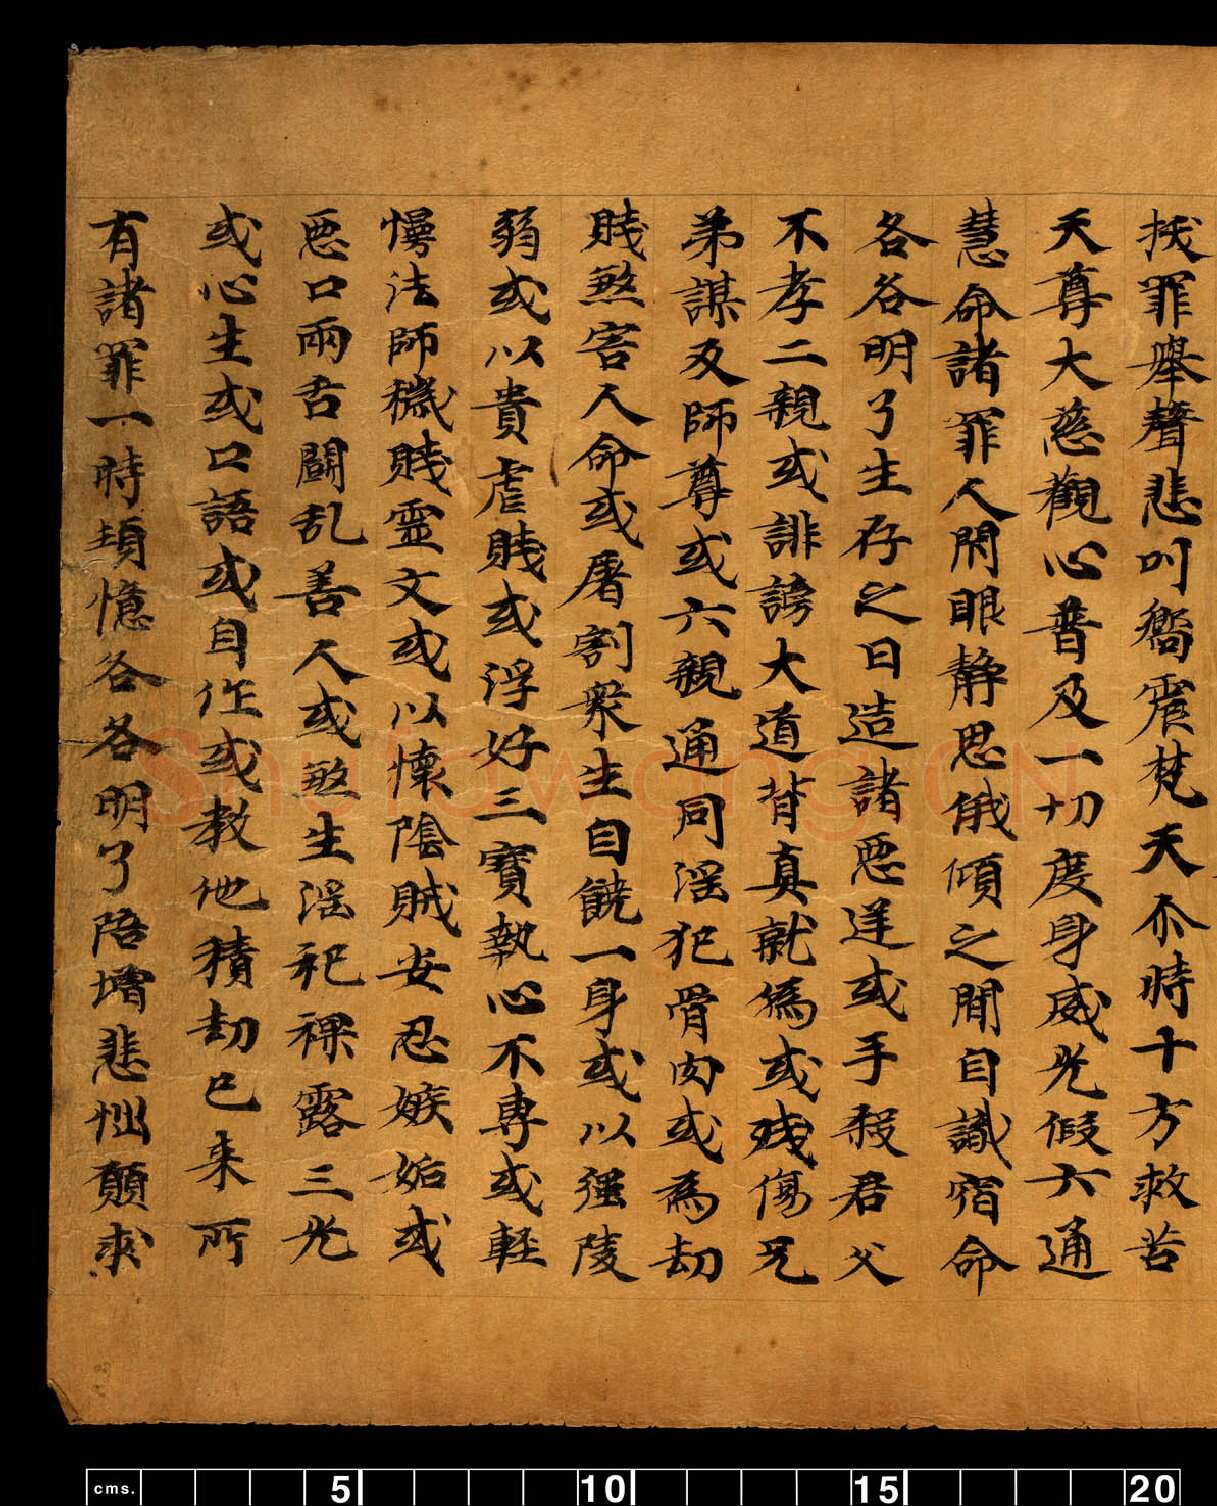 拔罪舉聲悲叫響震梵天尒時十方救苦
天尊大慈觀心普及一切度身威光假六通
慧命諸罪人閇眼静思俄傾之間自識宿命
各各明了生存之日造諸惡逆或手殺君父
不孝二親或誹謗大道背真就僞或殘傷兄
弟謀及師尊或六親通同淫犯骨肉或為劫
賊煞害人命或屠割衆生自饒一身或以強陵
弱或以貴虐賤或浮好三寶執心不專或輕
慢法師穢賤靈文或以懷陰賊安忍嫉妬或
惡口兩舌鬭乱善人或煞生淫祀裸露三光
或心生或口語或自作或教他積劫已来所
有諸罪一時頓憶各各明了陪增悲惱願求
cms. 5 10 15 20
Shufawang.CN